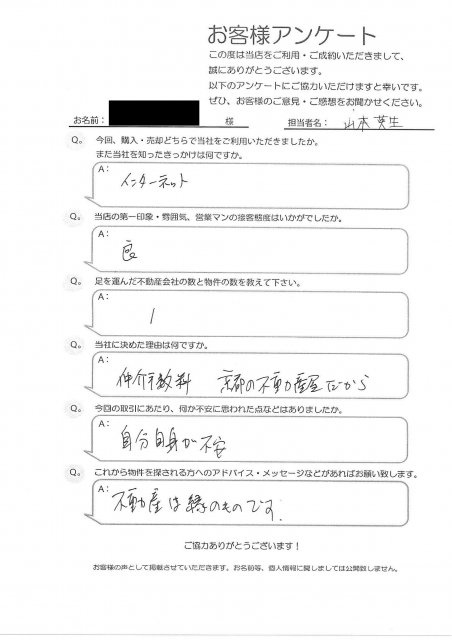 お客様アンケート
この度は当店をご利用・ご成約いただきまして、
誠にありがとうございます。
以下のアンケートにご協力いただけますと幸いです。
ぜひ、お客様のご意見・ご感想をお聞かせください。
お名前： 様 担当者名：
Q。 今回、購入・売却どちらで当社をご利用いただきましたか。
また当社を知ったきっかけは何ですか。
A：
インターネット
Q。 当店の第一印象・雰囲気、営業マンの接客態度はいかがでしたか。
A：
良
Q。 足を運んだ不動産会社の数と物件の数を教えて下さい。
A：
1
Q。 当社に決めた理由は何ですか。
A：
仲介手数料 京都の不動産屋だから
Q。 今回の取引にあたり、何か不安に思われた点などはありましたか。
A：
自分自身が不安
Q。 これから物件を探される方へのアドバイス・メッセージなどがあればお願い致します。
A：
不動産は縁のものです
ご協力ありがとうございます！
お客様の声として掲載させていただきます。お名前等、個人情報に関しましては公開致しません。